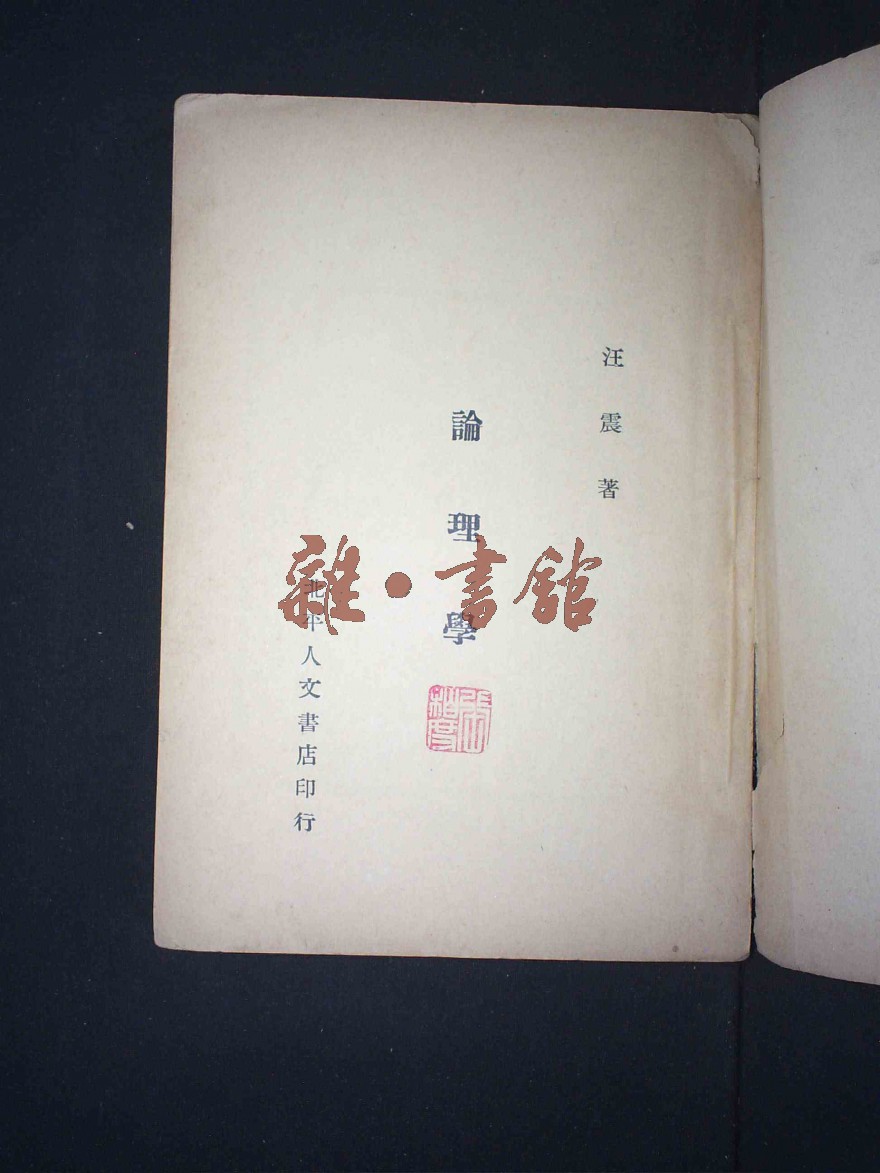 汪震著
論理學
北平人文書店印行
雜·書館